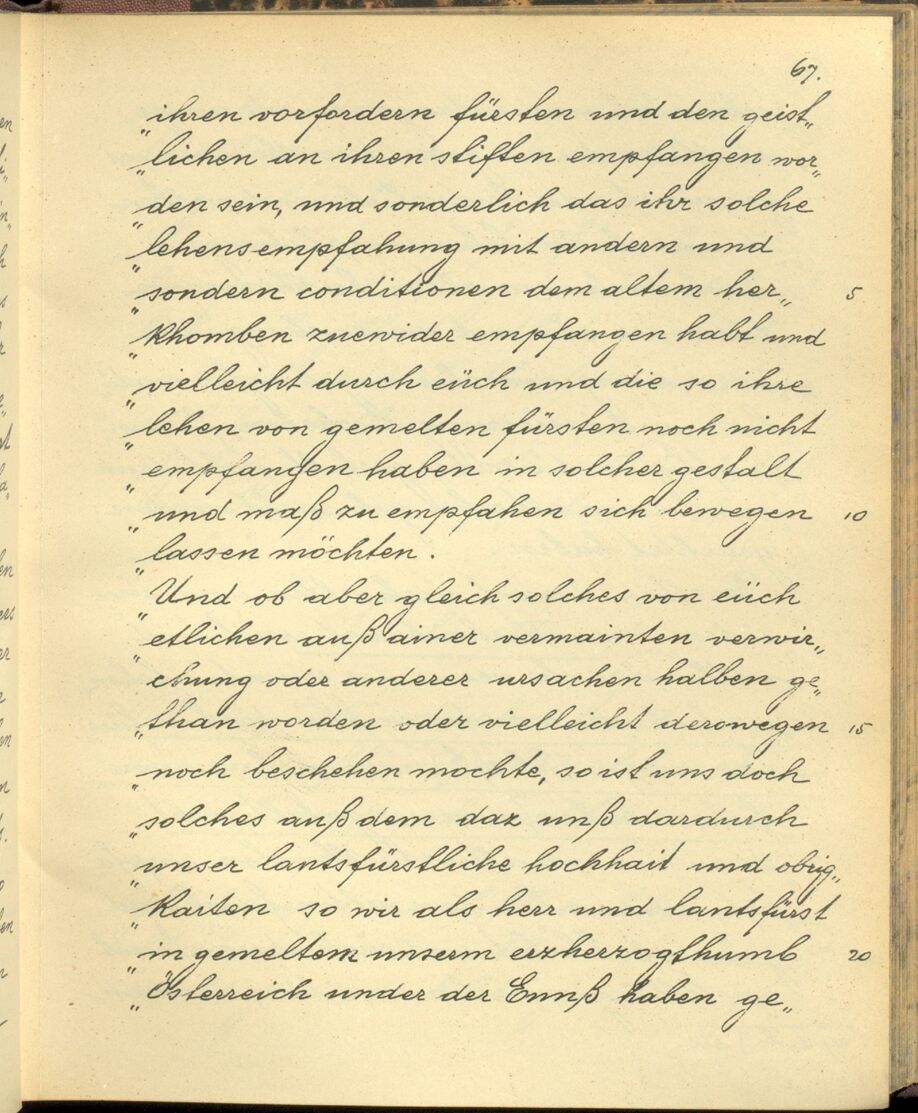 67.
„ihren vorfordern fürsten und den geist„
„lichen an ihren stiften empfangen wor„
„den sein, und sonderlich das ihr solche
„lehensempfahung mit andern und
„sondern conditionen dem altem her„ 5
„khomben zuewider empfangen habt und
„vielleicht durch eüch und die so ihre
„lehen von gemelten fürsten noch nicht
„empfangen haben in solcher gestalt
„und maß zu empfahen sich bewegen 10
„lassen möchten.
„Und ob aber gleich solches von eüch
„etlichen auß ainer vermainten verwir„
„chung oder anderer ursachen halben ge„
„than worden oder vielleicht derowegen 15
„noch beschehen mochte, so ist uns doch
„solches auß dem daz unß dardurch
„unser lantsfürstliche hochhait und obrig„
„kaiten so wir als herr und lantsfürst
„in gemeltem unserm erzherzogthumb 20
„Österreich under der Ennß haben ge„